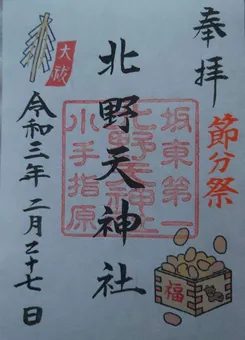 奉拝
節分祭
坂東第一
北野天神社
小手指原
大祓
令和三年二月二十七日
福